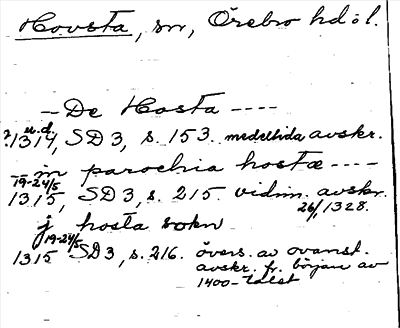 Hovsta, sn, Örebro hd ö l.
— De Hosta ----
?1314 u.d., SD 3, s. 153. medeltida avskr.
-- in parochia hostæ ----
1315 19-24/5, SD 3, s. 215. vidim. avskr. 26/, 1328.
j hosta sokn
1315 19-24/5 SD 3, s. 216. övers. av ovanst.
avskr. fr. början av
1400-talet